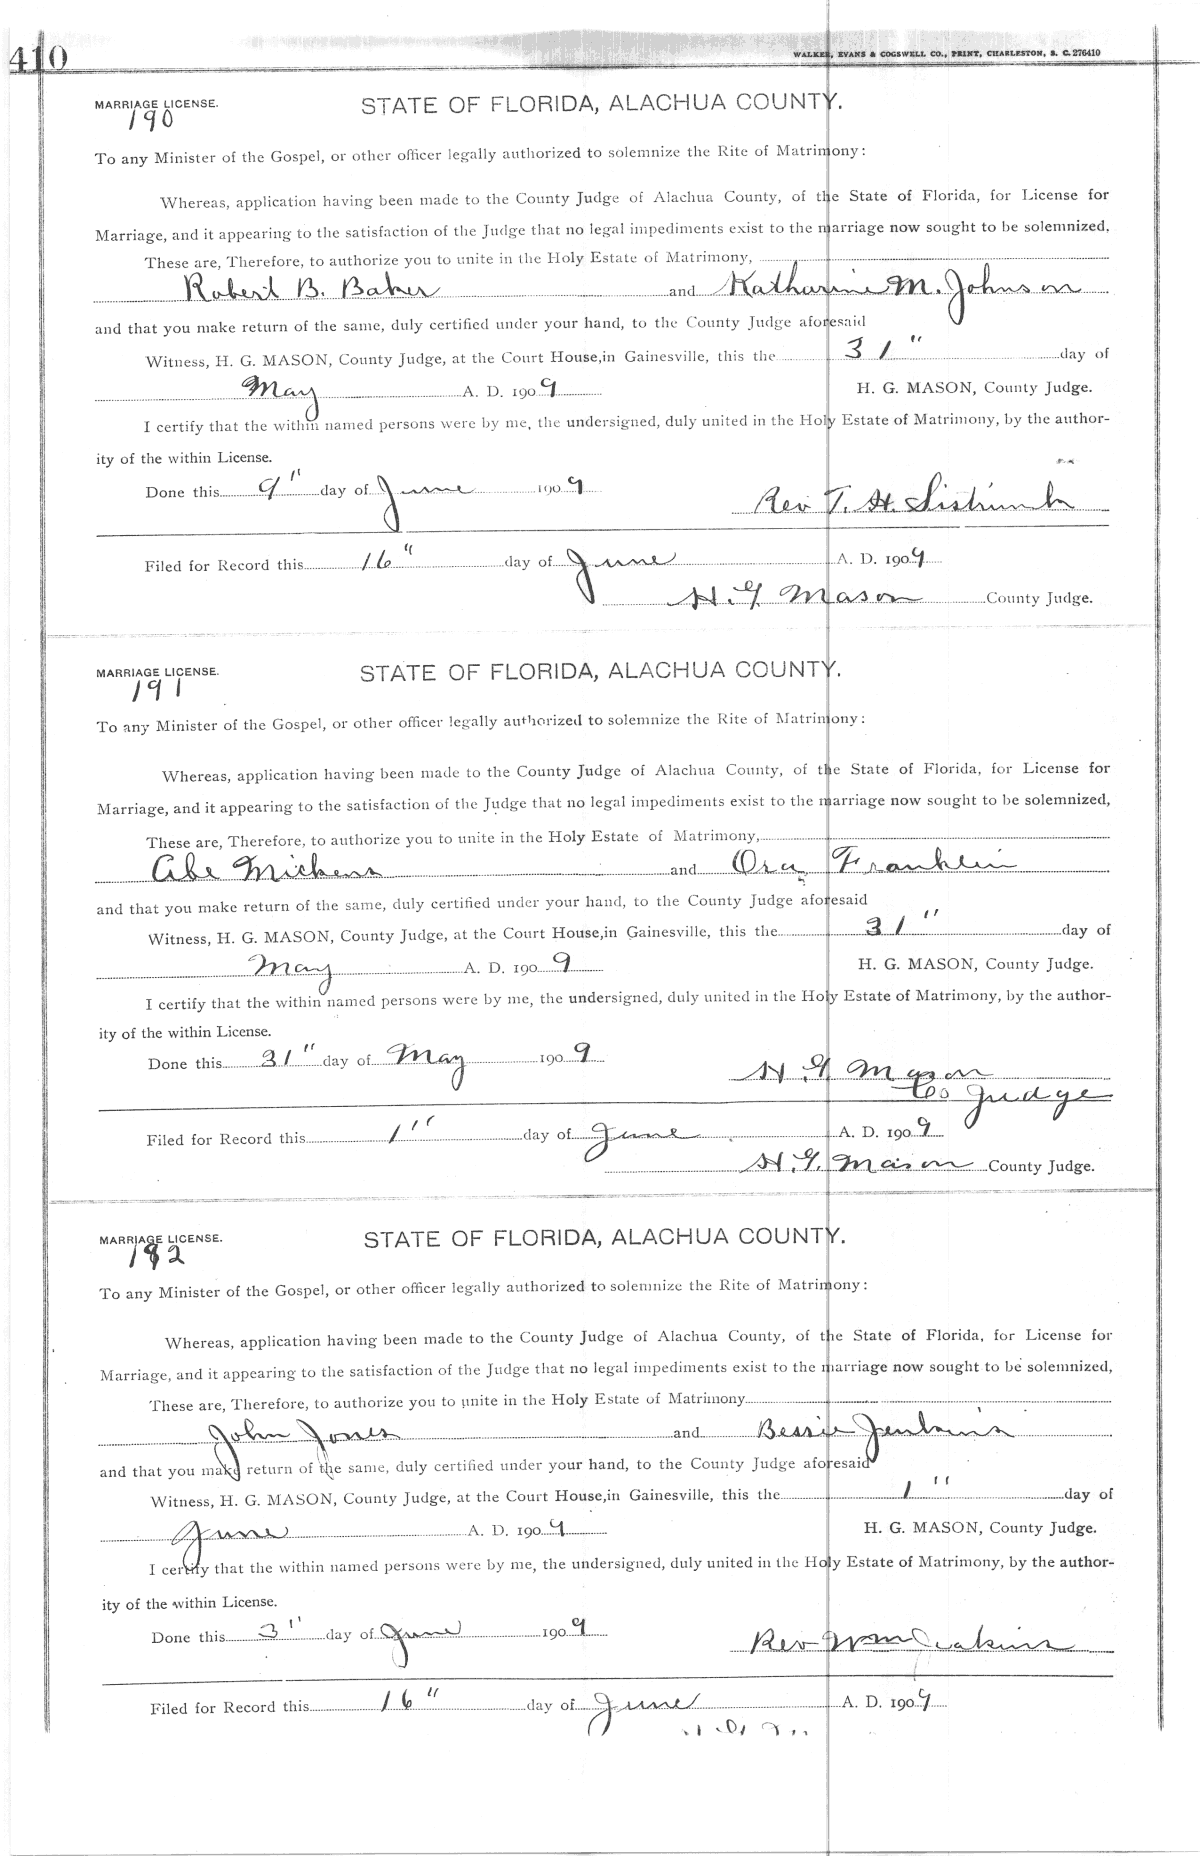 410
WALKER, EVANS & COGSWELL CO., PRINT, CHARLESTON, S. C. 276410
MARRIAGE LICENSE. STATE OF FLORIDA, ALACHUA COUNTY.
190
To any Minister of the Gospel, or other officer legally authorized to solemnize the Rite of Matrimony:
Whereas, application having been made to the County Judge of Alachua County, of the State of Florida, for License for
Marriage, and it appearing to the satisfaction of the Judge that no legal impediments exist to the marriage now sought to be solemnized,
These are, Therefore, to authorize you to unite in the Holy Estate of Matrimony,
Robert B. Baker and Katharine M. Johnson
and that you make return of the same, duly certified under your hand, to the County Judge aforesaid
Witness, H. G. MASON, County Judge, at the Court House, in Gainesville, this the 31" day of
May A. D. 1909 H. G. MASON, County Judge.
I certify that the within named persons were by me, the undersigned, duly united in the Holy Estate of Matrimony, by the author-
ity of the within License.
Done this 9" day of June 1909
Rev T. H. Sistrunk
Filed for Record this 16" day of June A. D. 1909
H. G Mason County Judge.
MARRIAGE LICENSE. STATE OF FLORIDA, ALACHUA COUNTY.
191
To any Minister of the Gospel, or other officer legally authorized to solemnize the Rite of Matrimony:
Whereas, application having been made to the County Judge of Alachua County, of the State of Florida, for License for
Marriage, and it appearing to the satisfaction of the Judge that no legal impediments exist to the marriage now sought to be solemnized,
These are, Therefore, to authorize you to unite in the Holy Estate of Matrimony,
Abe Mickens and Ora Franklin
and that you make return of the same, duly certified under your hand, to the County Judge aforesaid
Witness, H. G. MASON, County Judge, at the Court House, in Gainesville, this the 31" day of
May A. D. 1909 H. G. MASON, County Judge.
I certify that the within named persons were by me, the undersigned, duly united in the Holy Estate of Matrimony, by the author-
ity of the within License.
Done this 31" day of May 1909 H. G Mason
Co Judge
Filed for Record this 1" day of June A. D. 1909
H. G. Mason County Judge.
MARRIAGE LICENSE. STATE OF FLORIDA, ALACHUA COUNTY.
192
To any Minister of the Gospel, or other officer legally authorized to solemnize the Rite of Matrimony:
Whereas, application having been made to the County Judge of Alachua County, of the State of Florida, for License for
Marriage, and it appearing to the satisfaction of the Judge that no legal impediments exist to the marriage now sought to be solemnized,
These are, Therefore, to authorize you to unite in the Holy Estate of Matrimony
John Jones and Bessie Jenkins
and that you make return of the same, duly certified under your hand, to the County Judge aforesaid
Witness, H. G. MASON, County Judge, at the Court House, in Gainesville, this the 1" day of
June A. D. 1909 H. G. MASON, County Judge.
I certify that the within named persons were by me, the undersigned, duly united in the Holy Estate of Matrimony, by the author-
ity of the within License.
Done this 3" day of June 1909
Rev Wm
Filed for Record this 16" day of June A. D. 1909